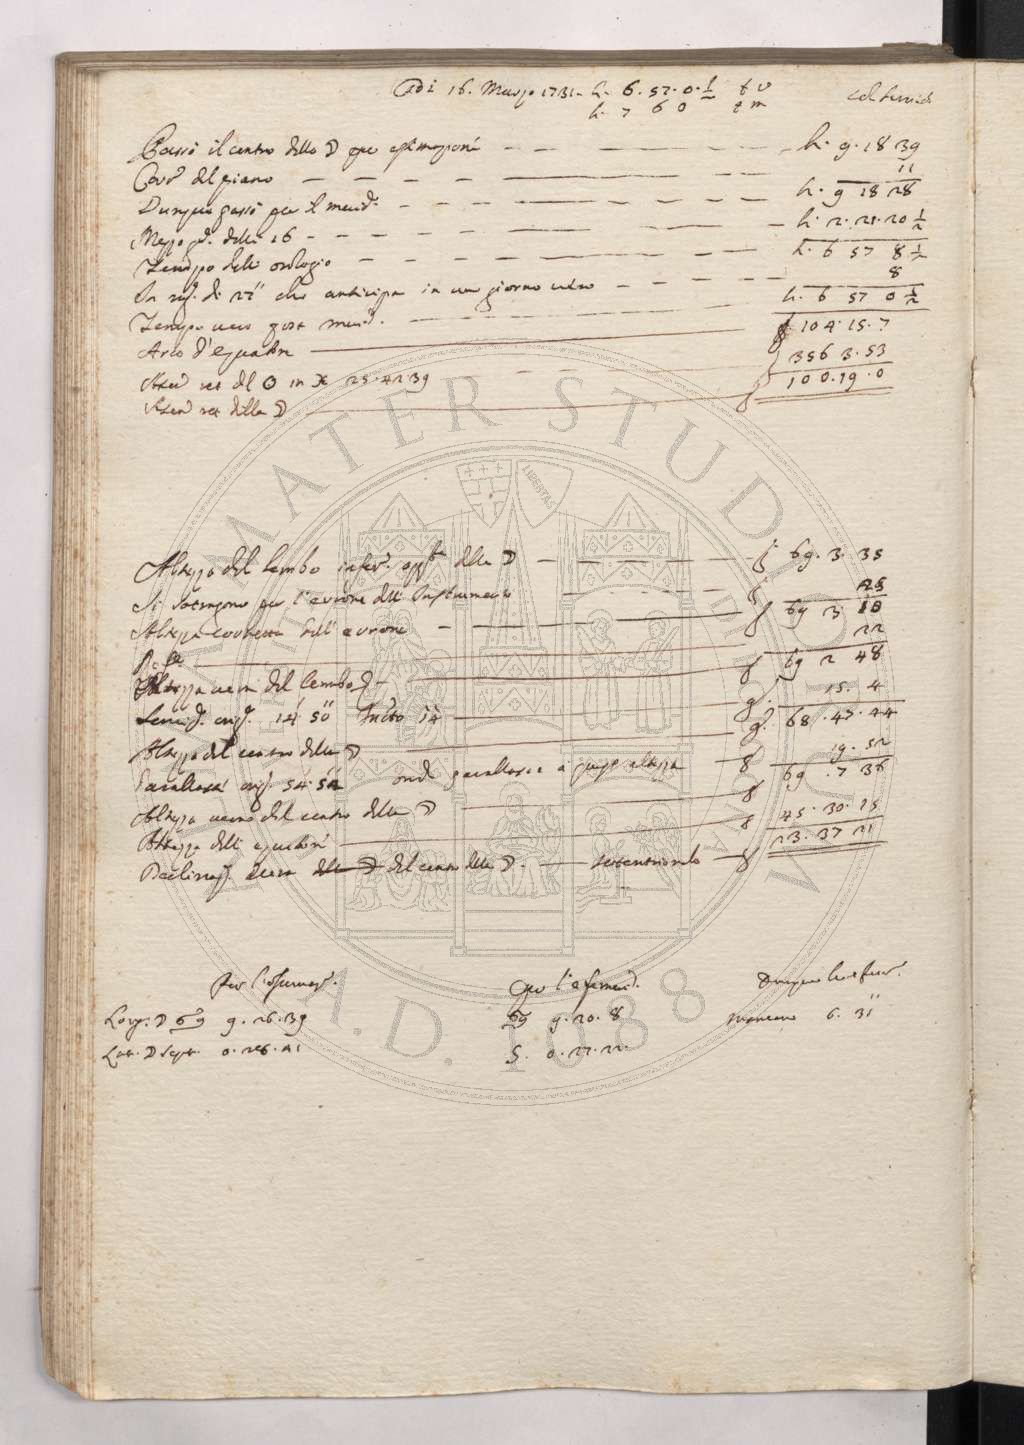 Adì 16. Marzo 1731. h. 6. 57. 0. ½ t v
h. 7 6 0 t m
Passò il centro della ☽ per estimazione h. 9. 18 39
Corr. del piano 11
Dunque passò per il merid. h. 9 18 28
Mezzo gd. delli 16 h. 2. 21. 20 ½
Tempo dell' orologio h. 6 57 8 ½
In rig. di 27" che anticipa in un giorno 8
Tempo vero post merid. h. 6 57 0 ½
Arco d'equatore 104. 15. 7
Asce. ret del ☉ in ♓ 25. 42 39 356 3. 53
Asce. ret della ☽ 100. 19. 0
Altezza del lembo infer. della ☽ 69. 3. 35
Si sottragono per l'errore dell' Instrumento 25
Altezza corretta dall' errore 69 3 10
22
Altezza vera del lembo 69 2 48
14' 50" 15. 4
Altezza del centro della ☽ 68. 47. 44
Parallasse 54. 52 onde parallasse a quest' altezza 19. 52
Altezza vera del centro della ☽ 69. 7 36
Altezza dell' equatore 45. 30. 15
Declinaz. vera del centro della ☽ settentrionale 23. 37 21
Per l'osservaz. Per l'efemerid. Dunque
Long. ☽ 69 9. 26. 39 69 9. 20. 8 mancano 6. 31"
Lat. ☽ Sept. 0. 26. 41 S. 0. 27. 22
A.D. 1088
ALMA MATER STUDIORUM
LIBERTAS